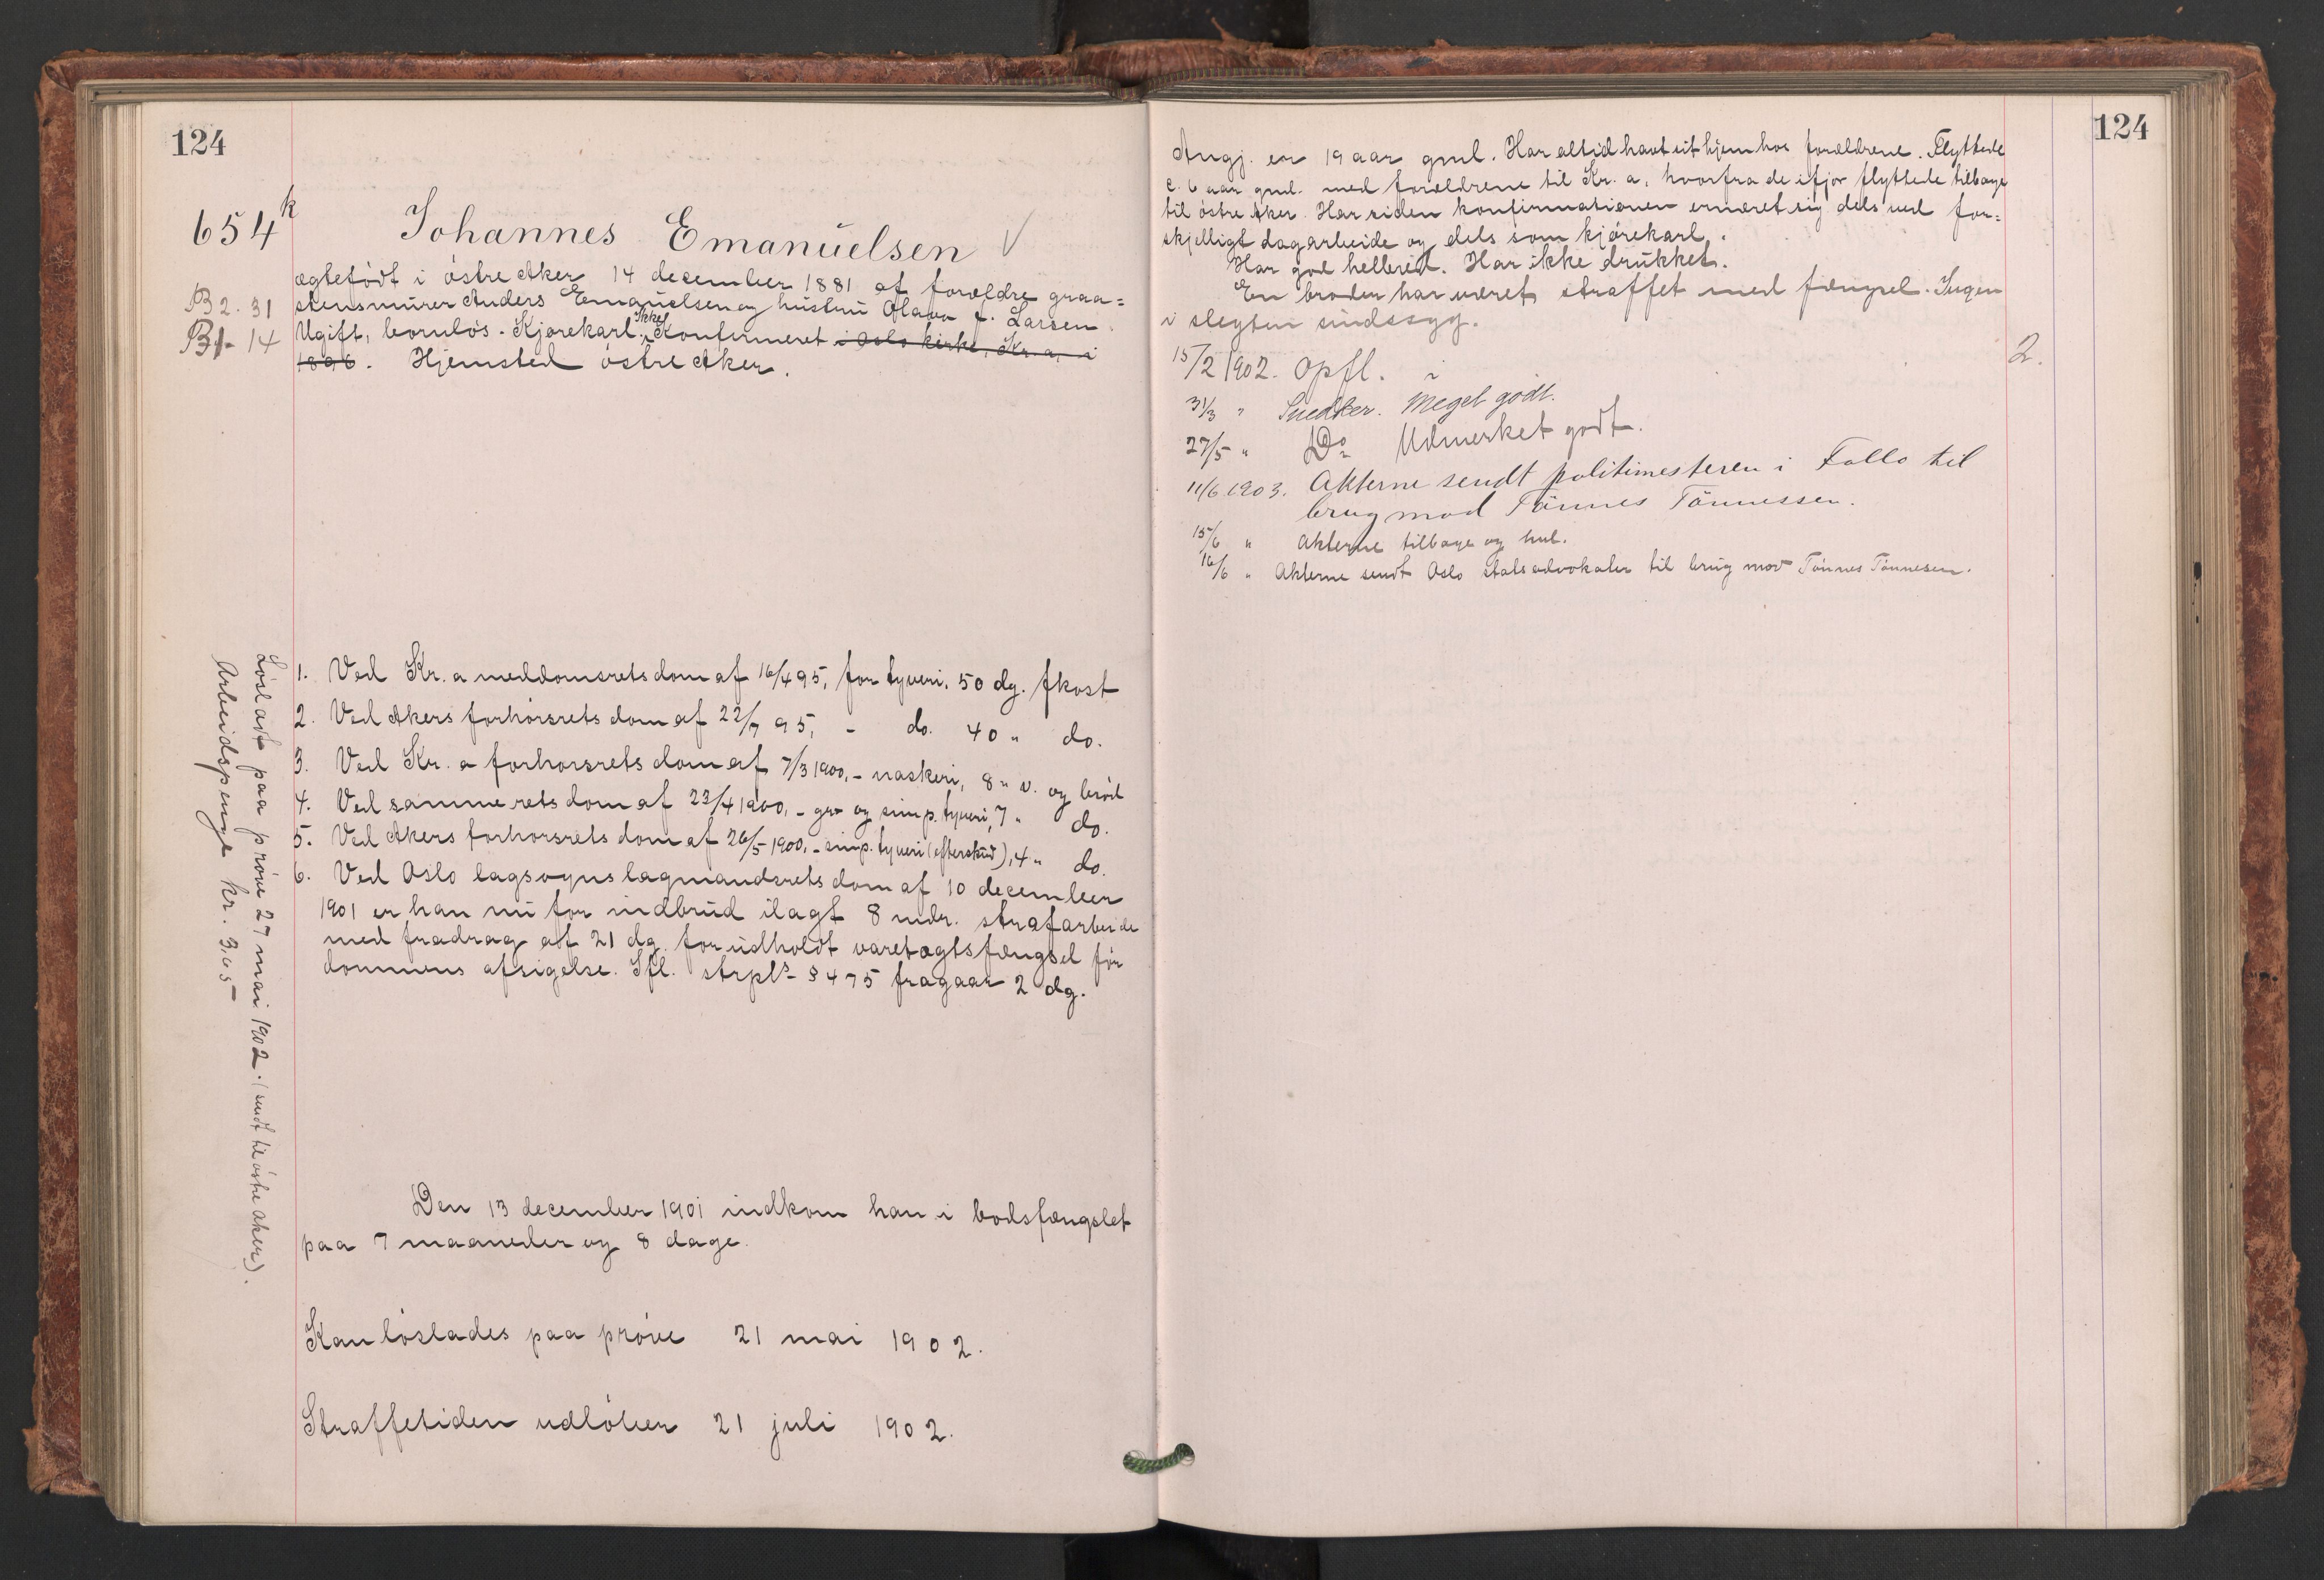 124
654 k
Johannes Emanuelsen √
ægtefödt i östre Aker 14 december 1881 af forældre graa=
B 2. 31
stensmurer Anders Emanuelsen og hustru Olava f. Larsen.
B 1- 14
Ugift, barnlös. Kjörekarl. Ikke Konfirmeret i Oslo kirke, Kr.a, i
1896. Hjemsted östre Aker.
1. Ved Kr.a meddomsrets dom af 16/4 95, for tyveri, 50 dg. fkost
2. Ved Akers forhörsrets dom af 22/7 95, - do. 40 " do.
3. Ved Kr.a forhörsrets dom af 7/3 1900, - naskeri, 8 " v. og bröd
4. Ved samme rets dom af 23/4 1900, - gr. og simp. tyveri, 7 " do.
5. Ved Akers forhörsrets dom af 26/5 1900, - simp. tyveri (efterskud), 4 " do.
6. Ved Oslo lagsogns lagmandsrets dom af 10 december
1901 er han nu for indbrud ilagt 8 mdr. strafarbeide
med fradrag af 21 dg. for udholdt varetægtsfængsel för
dommens afsigelse. Ifl. strpls § 475 fragaar 2 dg.
Lösladt paa pröve 27 mai 1902. (sendt til östre Aker).
Arbeidspenge kr. 3,65
Den 13 december 1901 indkom han i bodsfængslet
paa 7 maaneder og 8 dage.
Kan löslades paa pröve 21 mai 1902.
Straffetiden udlöber 21 juli 1902.
124
Angj. er 19 aar gml. Har altid havt sit hjem hos forældrene. Flyttede
c. 6 aar gml. med forældrene til Kr.a, hvorfra de ifjor flyttede tilbage
til östre Aker. Har siden konfirmationen ernæret sig dels ved for=
skjelligt dagarbeide og dels som kjörekarl.
Har god helbred. Har ikke drukket.
En broder har været straffet med fængsel. Ingen
i slegten sindssyg.
15/2 1902. Opfl. 2.
31/3 " Snedker. Meget godt.
27/5 " Do Udmerket godt.
11/6 1903. Akterne sendt politimesteren i Follo til
brug mod Tönnes Tönnessen.
15/6 " Akterne tilbage og hul.
16/6 " Akterne sendt Oslo statsadvokater til brug mod Tönnes Tönnesen.